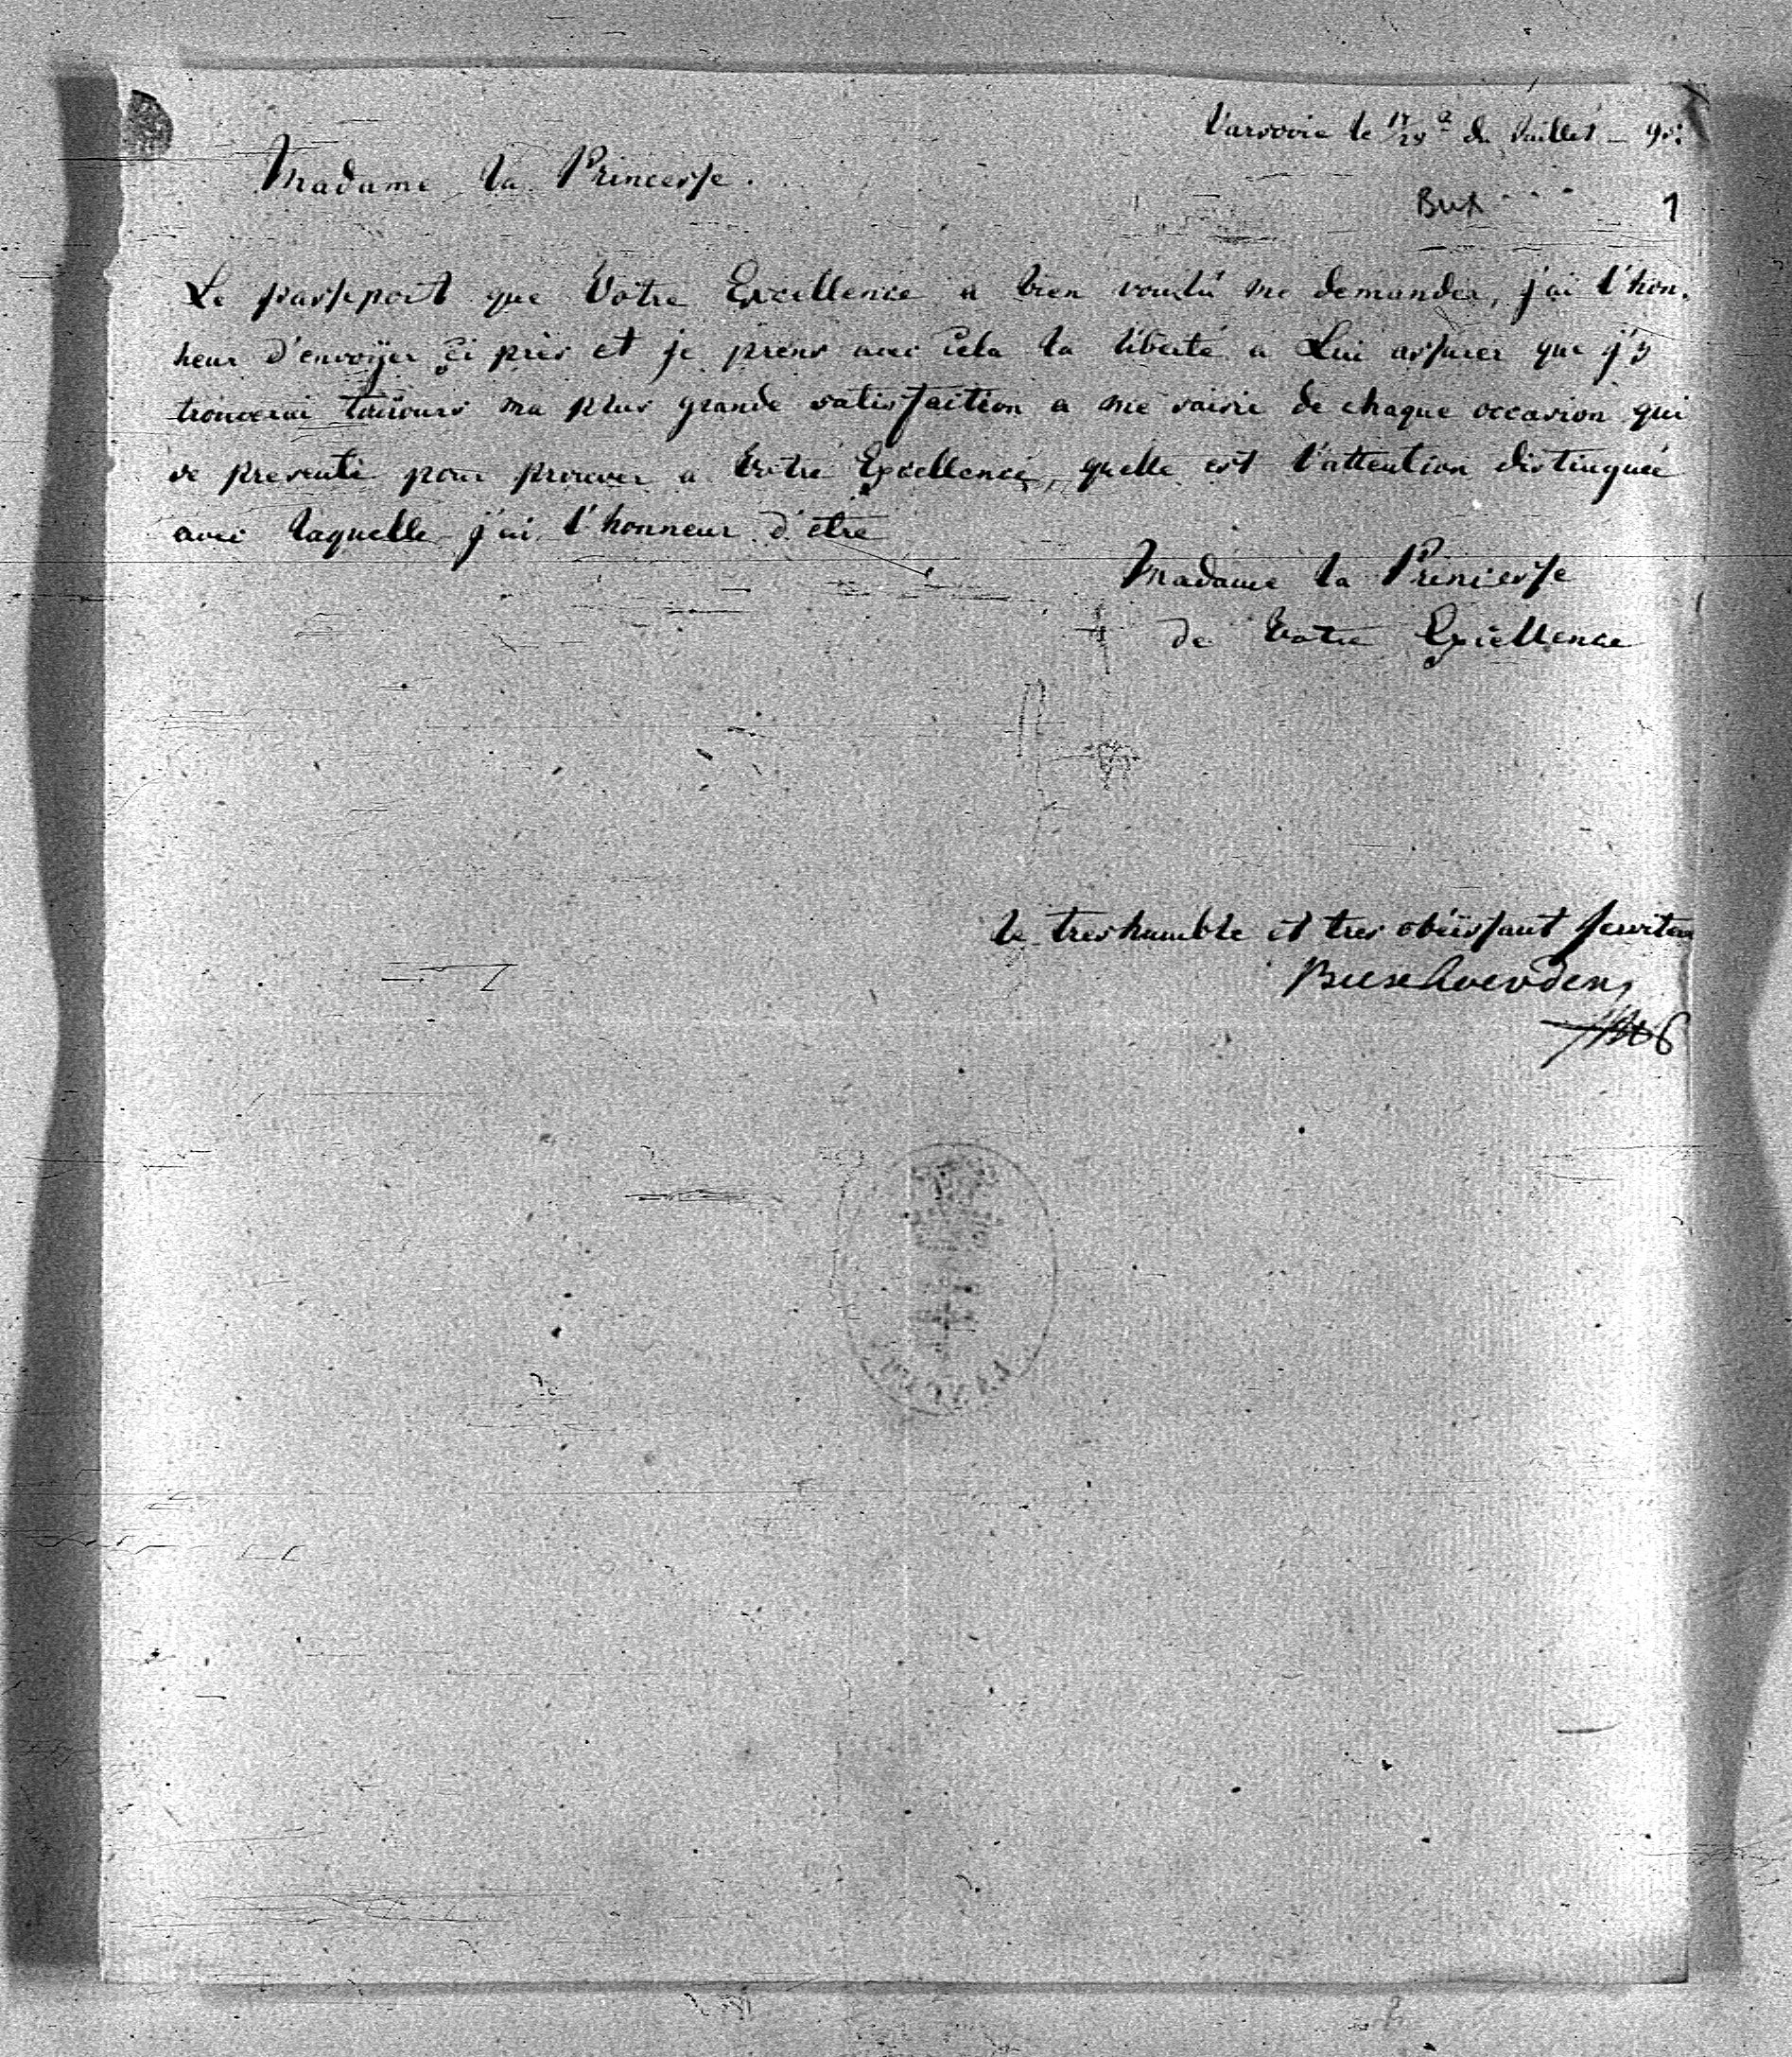 Varsovie le 17/28 du Juillet - 95:
Madame la Princesse.
Bux
1
Le passeport que Votre Excellence a bien voulû me demander, j'ai l'hon,
neur d'envoÿer çi près et je prens avec cela la liberté a Lui assurer que j'y
trouverai toujours ma plus grande satisfaction a me saisir de chaque occasion qui
se presente pour prouver a Votre Excellence, quelle est l'attention distinguée
avec laquelle j'ai l'honneur d'etre
Madame la Princesse
de Votre Excellence
le treshumble et tres obéissant serviteur
Buxhoevden